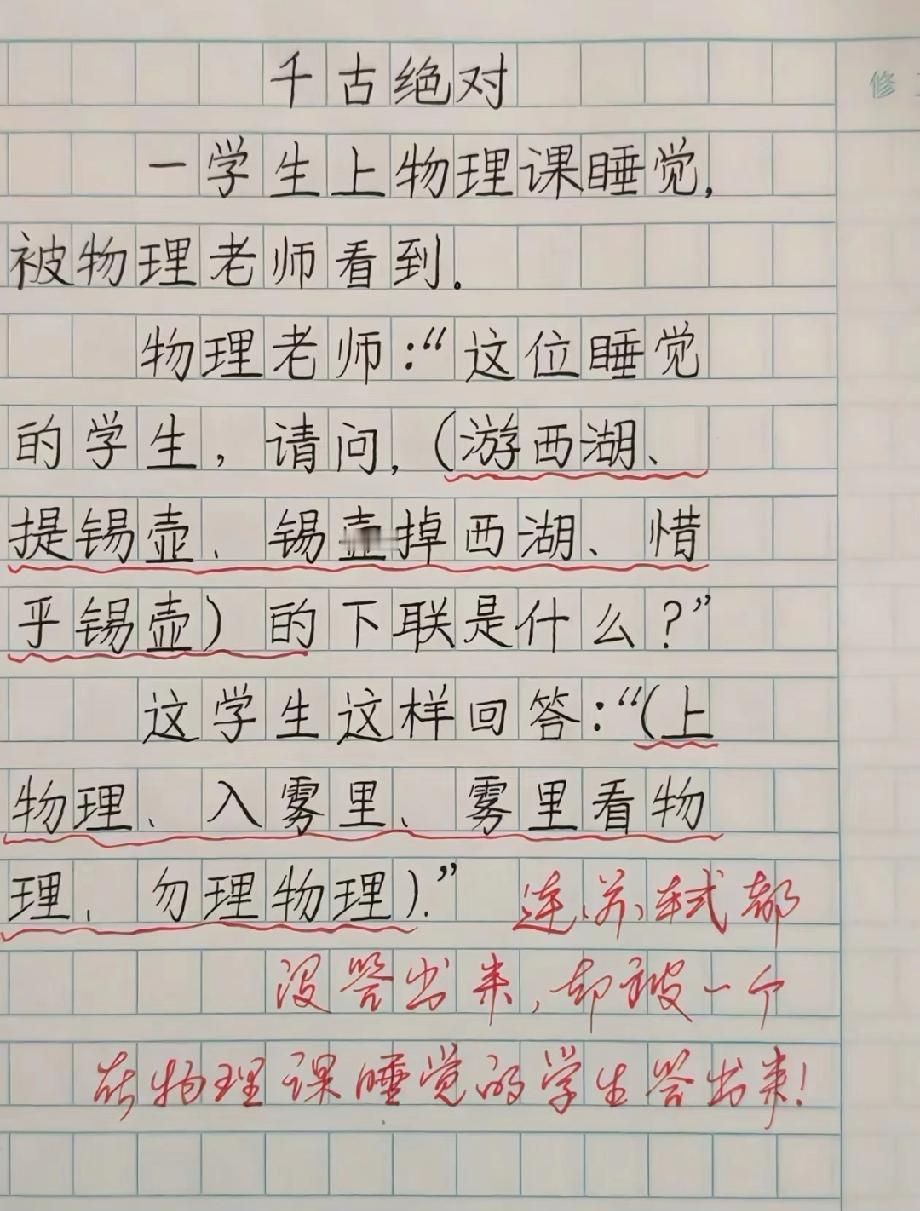 修
千古绝对
一学生上物理课睡觉,
被物理老师看到.
物理老师:“这位睡觉
的学生,请问,(游西湖、
提锡壶、锡壶掉西湖、惜
乎锡壶)的下联是什么?”
这学生这样回答:“(上
物理、入雾里、雾里看物
理、勿理物理).”连苏轼都
没答出来,却被一个
在物理课睡觉的学生答出来!